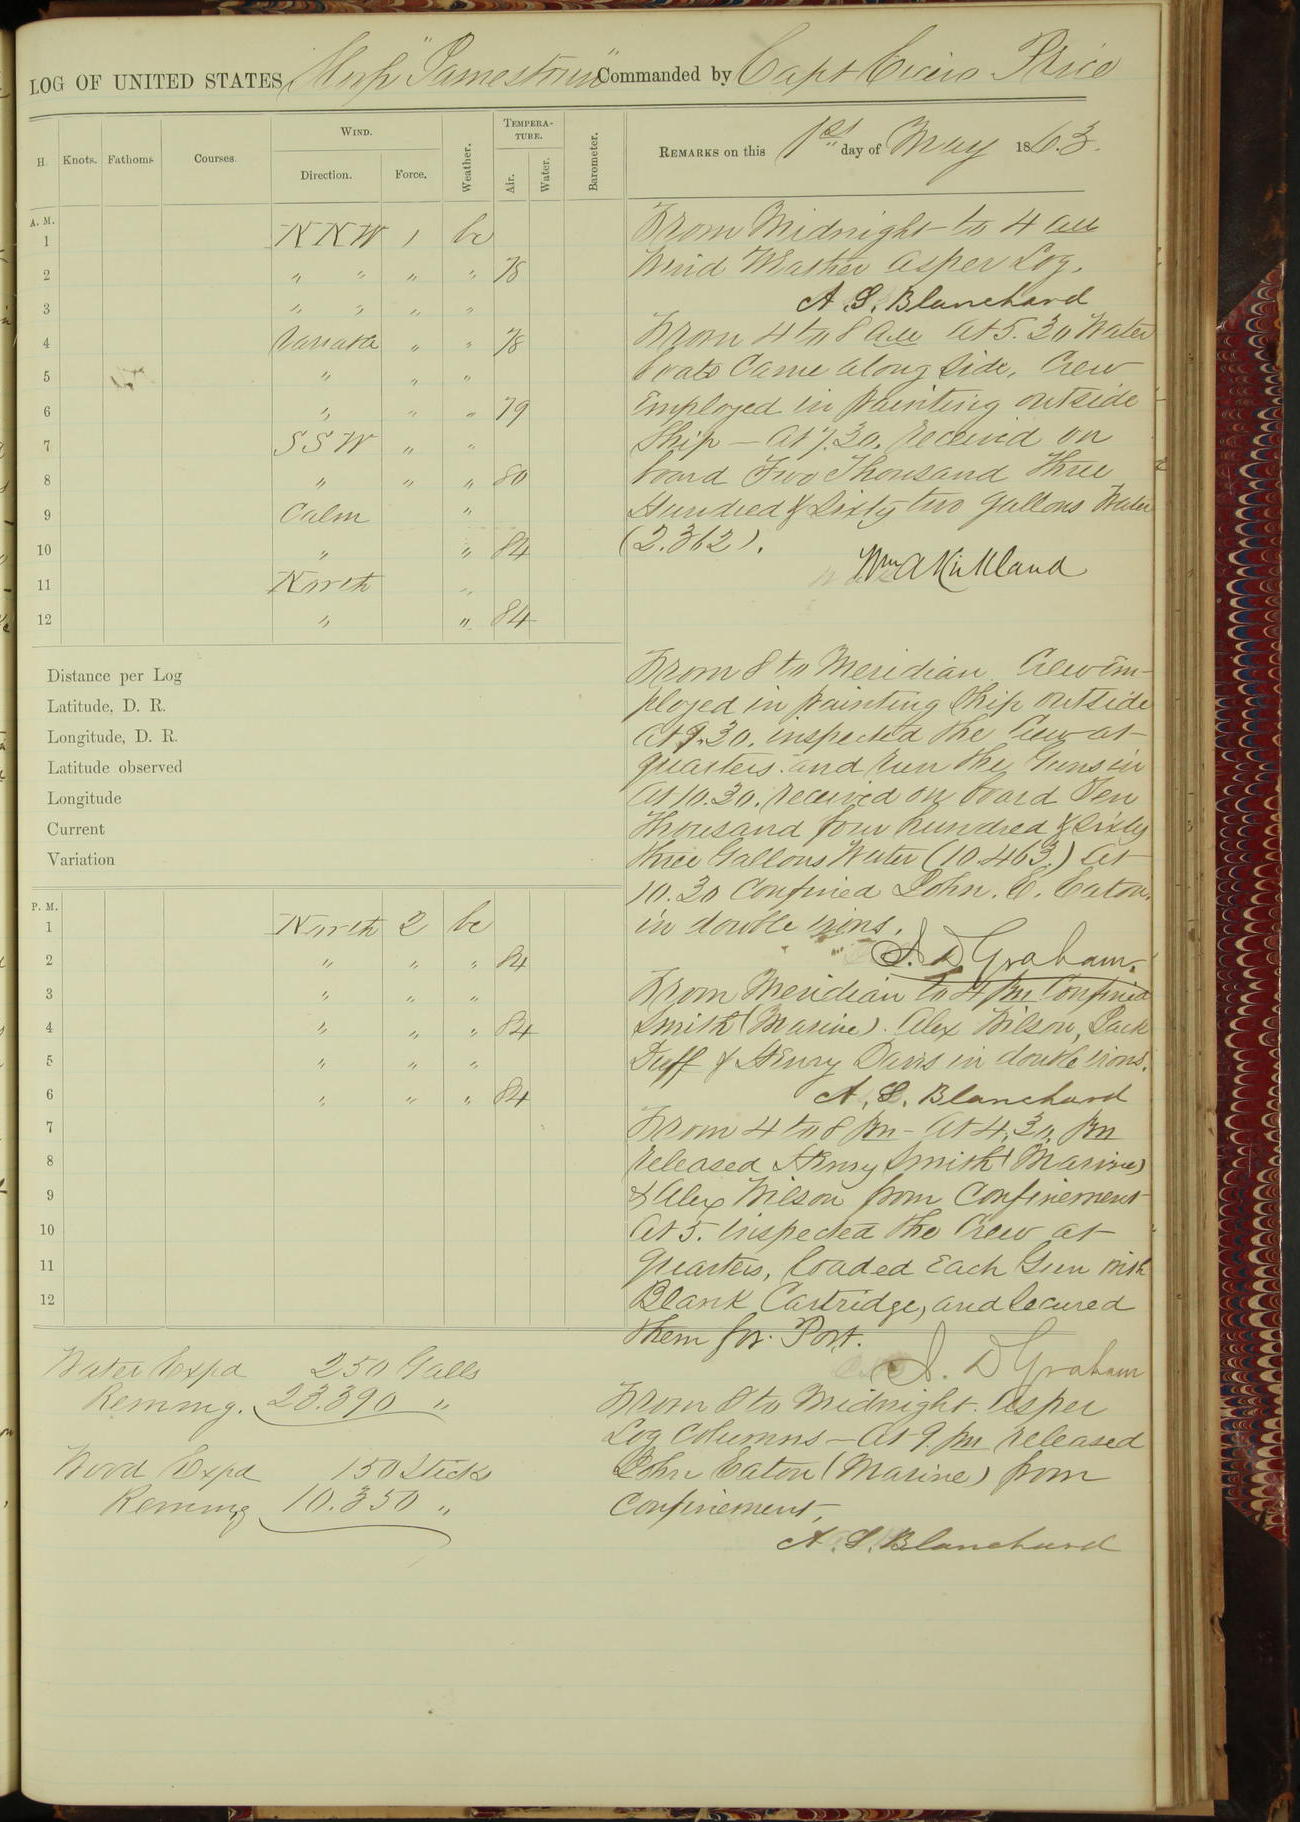 LOG OF UNITED STATES Ship "Jamestown" Commanded by Capt Cicero Price
H. Knots. Fathoms. Courses. WIND. Direction. Force. Weather. TEMPERATURE. Air. Water. Barometer.
REMARKS on this 1st day of May 1863.
A. M.
1 NNW 1 bc
2 " " " " 78
3 " " " "
4 Variable " " 78
5 " " "
6 " " " 79
7 SSW " "
8 " " " 80
9 Calm "
10 " " 84
11 North "
12 " " 84
From Midnight to 4 am
Wind Weather as per Log.
A. S. Blanchard
From 4 to 8 am At 5.30 Water
boats Came along side, Crew
Employed in painting outside
Ship - At 7.30. received on
board Two Thousand Three
Hundred & Sixty two gallons Water
(2.362).
Wm A Kirkland
Distance per Log
Latitude, D. R.
Longitude, D. R.
Latitude observed
Longitude
Current
Variation
From 8 to Meridian. Crew Em-
ployed in painting Ship outside
At 9.30. inspected the Crew at
quarters. and run the Guns in
At 10.30. received on board Ten
Thousand four hundred & Sixty
three Gallons Water (10.463.) At
10.30 Confined John. E. Eaton,
in double irons.
J. D Graham.
P. M.
1 North 2 bc
2 " " " 84
3 " " "
4 " " " 84
5 " " "
6 " " " 84
7
8
9
10
11
12
From Meridian to 4 pm Confined
Smith (Marine). Alex Wilson, Jack
Duff & Henry Davis in double irons.
A. S. Blanchard
From 4 to 8 pm - At 4.30. pm
released Henry Smith (Marine)
& Alex Wilson from Confinement
At 5. inspected the Crew at
quarters, loaded Each Gun with
Blank Cartridge, and Secured
them for Port.
J. D Graham
From 8 to Midnight. as per
Log Columns - At 9. pm released
John Eaton (Marine) from
Confinement,
A. S. Blanchard
Water Expd 250 Galls
Remng. 23.390 "
Wood Expd 150 Sticks
Remng 10.350 "